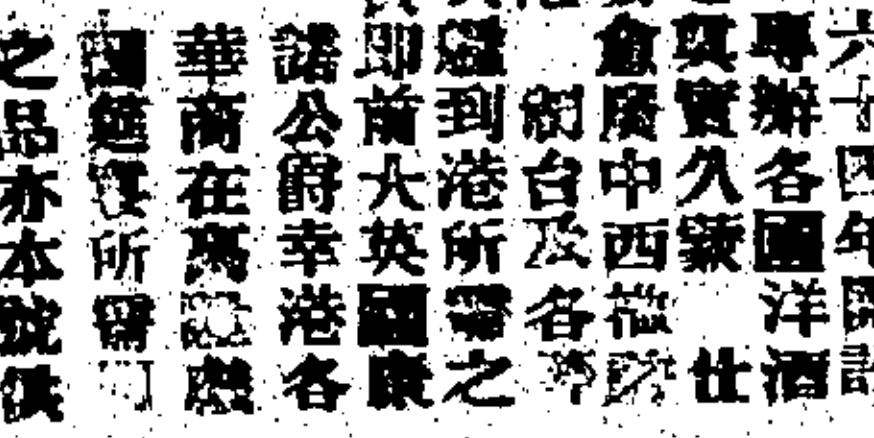 六十四年開設
專辦各國洋酒
真實久蒙仕
愈廣中西
制台及各
艦到港所需之
即前大英國康
諾公爵幸港各
華商在萬
國筵宴所需
之品亦本號供